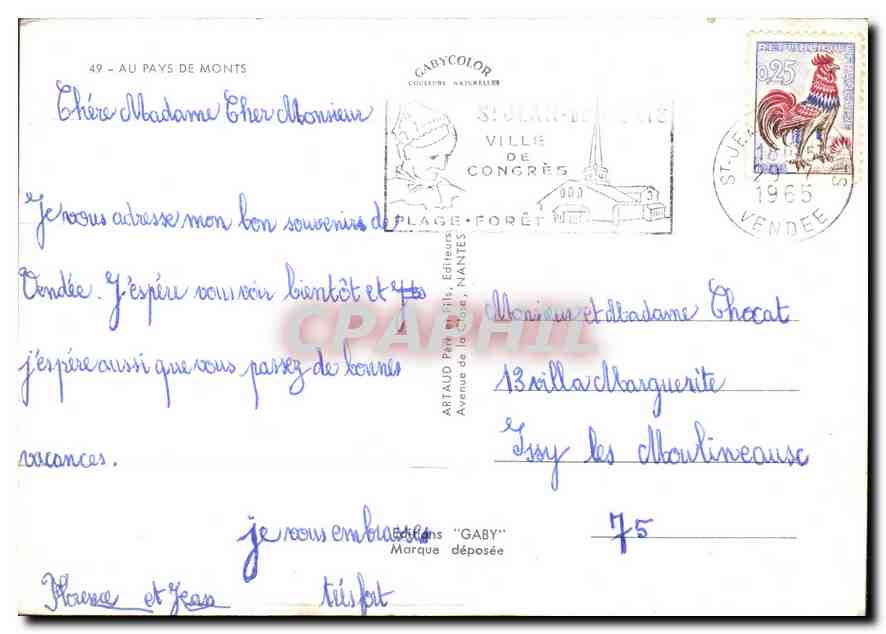 49 - AU PAYS DE MONTS
GABYCOLOR
COULEURS NATURELLES
Chére Madame Cher Monsieur
Je vous adresse mon bon souvenirs de
Vendée. J'espére vous voir bientôt et
j'espére aussi que vous passez de bonnes
vacances.
je vous embrasses
trés fort
Florence et Jean
ST-JEAN-DE-MONTS
VILLE
DE
CONGRÈS
PLAGE • FORÊT
0,25
ST-JEAN
18H
29-7
1965
VENDEE
ARTAUD Père et Fils, Editeurs
Avenue de la Close, NANTES
CPAPHIL
Monsieur et Madame Chocat
13 villa Marguerite
Issy les Moulineausc
75
Editions "GABY"
Marque déposée